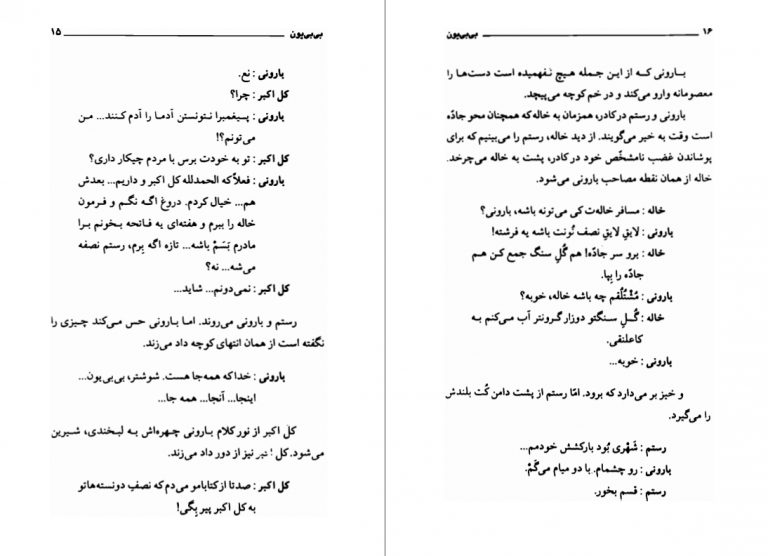 بی‌بی‌یون ۱۵
یارونی : نع.
کل اکبر : چرا؟
یارونی : پسیغمبرا نتونستن آدما را آدم کنند... من
می‌تونم؟!
کل اکبر : تو به خودت برس با مردم چیکار داری؟
یارونی : فعلاً که الحمدلله کل اکبر و داریم... بعدش
هم... خیال کردم. دروغ اگه نگم و فرمون
خاله را ببرم و هفته‌ای یه فاتحه بخونم برا
مادرم بَسَمْ باشه... تازه اگه بِرم، رستم نصفه
می‌شه... نه؟
کل اکبر : نمی‌دونم... شاید...
رستم و یارونی می‌روند. اما یارونی حس می‌کند چیزی را
نگفته است از همان انتهای کوچه داد می‌زند.
یارونی : خدا که همه‌جا هست. شوشتر، بی‌بی‌یون...
اینجا... آنجا... همه جا...
کل اکبر از نور کلام یارونی چهره‌اش به لبخندی، شیرین
می‌شود. کل اکبر نیز از دور داد می‌زند.
کل اکبر : صدتا از کتابامو می‌دم که نصفِ دونسته‌هاتو
به کل اکبر پیر بِگی!
۱۶ بی‌بی‌یون
یارونی که از این جمله هیچ نفهمیده است دست‌ها را
معصومانه وارو می‌کند و در خم کوچه می‌پیچد.
یارونی و رستم در کادر، همزمان به خاله که همچنان محو جادّه
است وقت به خیر می‌گویند. از دید خاله، رستم را می‌بینیم که برای
پوشاندن غضب نامشخّص خود در کادر، پشت به خاله می‌چرخد.
خاله از همان نقطه مصاحب یارونی می‌شود.
خاله : مسافر خاله‌ت کی می‌تونه باشه، یارونی؟
یارونی : لایقِ لایقِ نصف نُونت باشه یه فرشته!
خاله : برو سر جادّه! هم گُلِ سنگ جمع کن هم
جادّه را بِپا.
یارونی : مُشْتُلُقم چه باشه خاله، خوبه؟
خاله : گُلِ سنگتو دوزار گرونتر آب می‌کنم به
کاعلنقی.
یارونی : خوبه...
و خیز بر می‌دارد که برود. امّا رستم از پشت دامن کُت بلندش
را می‌گیرد.
رستم : شَهْری بُود بارکشش خودمم...
یارونی : رو چشمام. با دو میام می‌گَمْ.
رستم : قسم بخور.